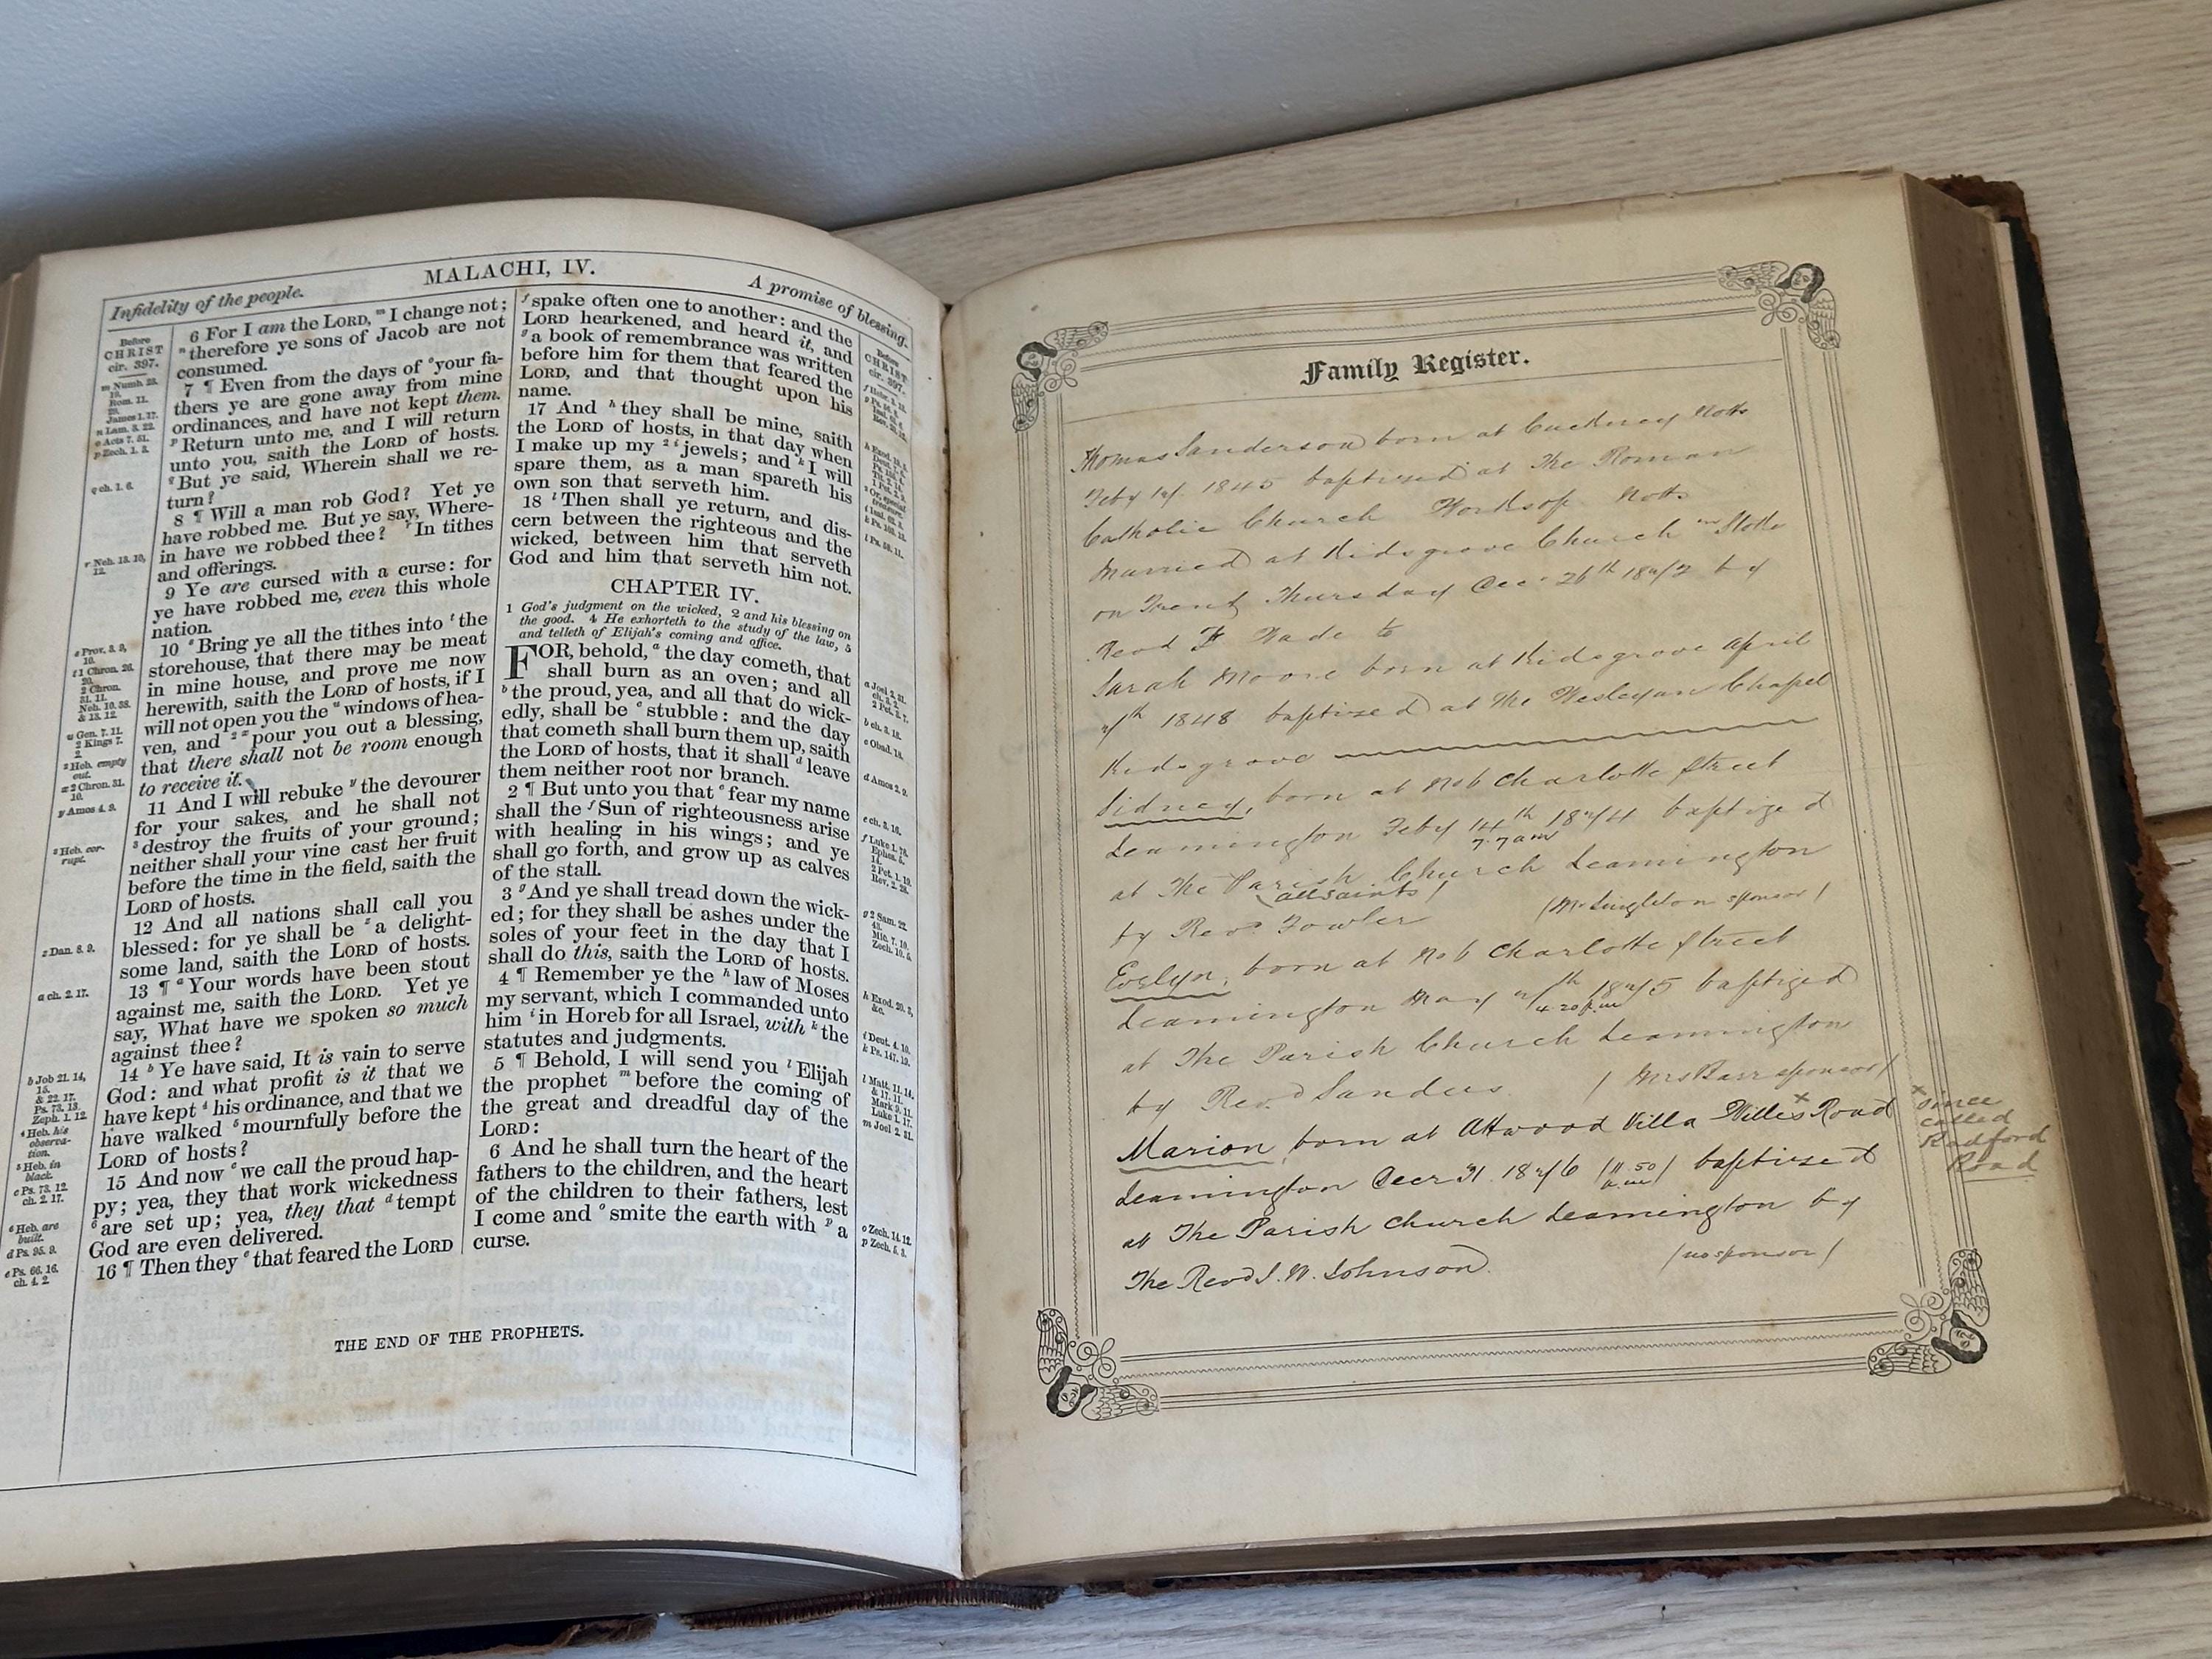 MALACHI, IV.
Infidelity of the people.
A promise of blessing.
Before
CHRIST
cir. 397.
m Numb. 23.
19.
Rom. 11.
29.
James 1. 17.
n Lam. 3. 22.
o Acts 7. 51.
p Zech. 1. 3.
q ch. 1. 6.
r Neh. 13. 10,
12.
s Prov. 3. 9,
10.
t 1 Chron. 26.
20.
2 Chron.
31. 11.
Neh. 10. 38.
& 13. 12.
u Gen. 7. 11.
2 Kings 7.
2.
2 Heb. empty
out.
x 2 Chron. 31.
10.
y Amos 4. 9.
3 Heb. cor-
rupt.
z Dan. 8. 9.
a ch. 2. 17.
b Job 21. 14,
15.
& 22. 17.
Ps. 73. 13.
Zeph. 1. 12.
4 Heb. his
observa-
tion.
5 Heb. in
black.
c Ps. 73. 12.
ch. 2. 17.
6 Heb. are
built.
d Ps. 95. 9.
e Ps. 66. 16.
ch. 4. 2.
6 For I am the LORD, m I change not;
n therefore ye sons of Jacob are not
consumed.
7 ¶ Even from the days of o your fa-
thers ye are gone away from mine
ordinances, and have not kept them.
p Return unto me, and I will return
unto you, saith the LORD of hosts.
q But ye said, Wherein shall we re-
turn?
8 ¶ Will a man rob God? Yet ye
have robbed me. But ye say, Where-
in have we robbed thee? r In tithes
and offerings.
9 Ye are cursed with a curse: for
ye have robbed me, even this whole
nation.
10 s Bring ye all the tithes into t the
storehouse, that there may be meat
in mine house, and prove me now
herewith, saith the LORD of hosts, if I
will not open you the u windows of hea-
ven, and 2 x pour you out a blessing,
that there shall not be room enough
to receive it.
11 And I will rebuke y the devourer
for your sakes, and he shall not
3 destroy the fruits of your ground;
neither shall your vine cast her fruit
before the time in the field, saith the
LORD of hosts.
12 And all nations shall call you
blessed: for ye shall be z a delight-
some land, saith the LORD of hosts.
13 ¶ a Your words have been stout
against me, saith the LORD. Yet ye
say, What have we spoken so much
against thee?
14 b Ye have said, It is vain to serve
God: and what profit is it that we
have kept 4 his ordinance, and that we
have walked 5 mournfully before the
LORD of hosts?
15 And now c we call the proud hap-
py; yea, they that work wickedness
6 are set up; yea, they that d tempt
God are even delivered.
16 ¶ Then they e that feared the LORD
f spake often one to another: and the
LORD hearkened, and heard it, and
g a book of remembrance was written
before him for them that feared the
LORD, and that thought upon his
name.
17 And h they shall be mine, saith
the LORD of hosts, in that day when
I make up my 2 i jewels; and k I will
spare them, as a man spareth his
own son that serveth him.
18 l Then shall ye return, and dis-
cern between the righteous and the
wicked, between him that serveth
God and him that serveth him not.
CHAPTER IV.
1 God's judgment on the wicked, 2 and his blessing on
the good. 4 He exhorteth to the study of the law, 5
and telleth of Elijah's coming and office.
FOR, behold, a the day cometh, that
shall burn as an oven; and all
b the proud, yea, and all that do wick-
edly, shall be c stubble: and the day
that cometh shall burn them up, saith
the LORD of hosts, that it shall d leave
them neither root nor branch.
2 ¶ But unto you that e fear my name
shall the f Sun of righteousness arise
with healing in his wings; and ye
shall go forth, and grow up as calves
of the stall.
3 g And ye shall tread down the wick-
ed; for they shall be ashes under the
soles of your feet in the day that I
shall do this, saith the LORD of hosts.
4 ¶ Remember ye the h law of Moses
my servant, which I commanded unto
him i in Horeb for all Israel, with k the
statutes and judgments.
5 ¶ Behold, I will send you l Elijah
the prophet m before the coming of
the great and dreadful day of the
LORD:
6 And he shall turn the heart of the
fathers to the children, and the heart
of the children to their fathers, lest
I come and o smite the earth with p a
curse.
Before
CHRIST
cir. 397.
l Ps. 58. 11.
a Joel 2. 31.
ch. 3. 2.
2 Pet. 3. 7.
b ch. 3. 18.
c Obad. 18.
d Amos 2. 9.
e ch. 3. 16.
f Luke 1. 78.
Ephes. 5.
14.
2 Pet. 1. 19.
Rev. 2. 28.
g 2 Sam. 22.
43.
Mic. 7. 10.
Zech. 10. 5.
h Exod. 20. 3,
&c.
i Deut. 4. 10.
k Ps. 147. 19.
l Matt. 11. 14.
& 17. 11.
Mark 9. 11.
Luke 1. 17.
m Joel 2. 31.
o Zech. 14. 12.
p Zech. 5. 3.
THE END OF THE PROPHETS.
Family Register.
Thomas Sanderson born at Cuckney Notts
Feby 1st 1845 baptised at The Roman
Catholic Church Worksop Notts
Married at Kidsgrove Church Stoke
on Trent Thursday Decr 26th 1872 by
Revd F. Wade to
Sarah Moore born at Kidsgrove April
7th 1848 baptised at the Wesleyan Chapel
Kidsgrove
Sidney, born at No 6 Charlotte Street
Leamington Feby 14th 1874 baptized
7.7 am
at The Parish Church Leamington
(all saints)
by Revd Fowler (Mr Singleton sponsor)
Evelyn, born at No 6 Charlotte Street
Leamington May 7th 1875 baptized
4.20 p.m
at The Parish Church Leamington
by Revd Sanders (Mrs Barr sponsor)
Marion, born at Attwood Villa Willes x Road
x since
called
Radford
Road
Leamington Decr 31 1876 (11.50
a.m) baptized
at The Parish Church Leamington by
The Revd J. W. Johnson. (no sponsor)